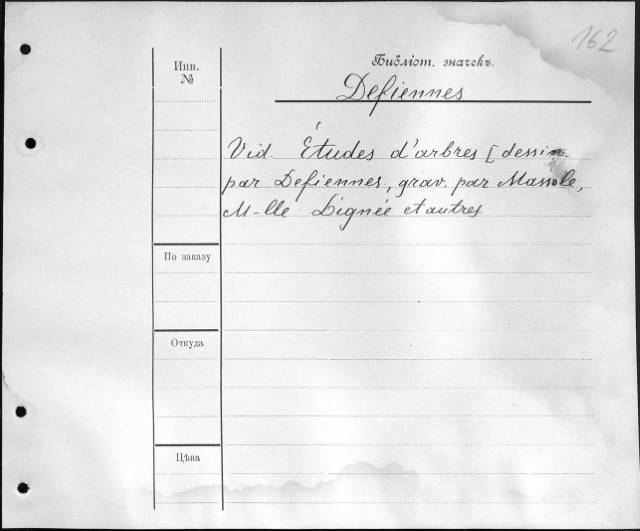 162
Инв.
№
Библіот. значекъ.
Defiennes
Vid. Études d'arbres [dessin.
par Defiennes, grav. par Massole,
M-lle Dignée et autres
По заказу
Откуда
Цѣна